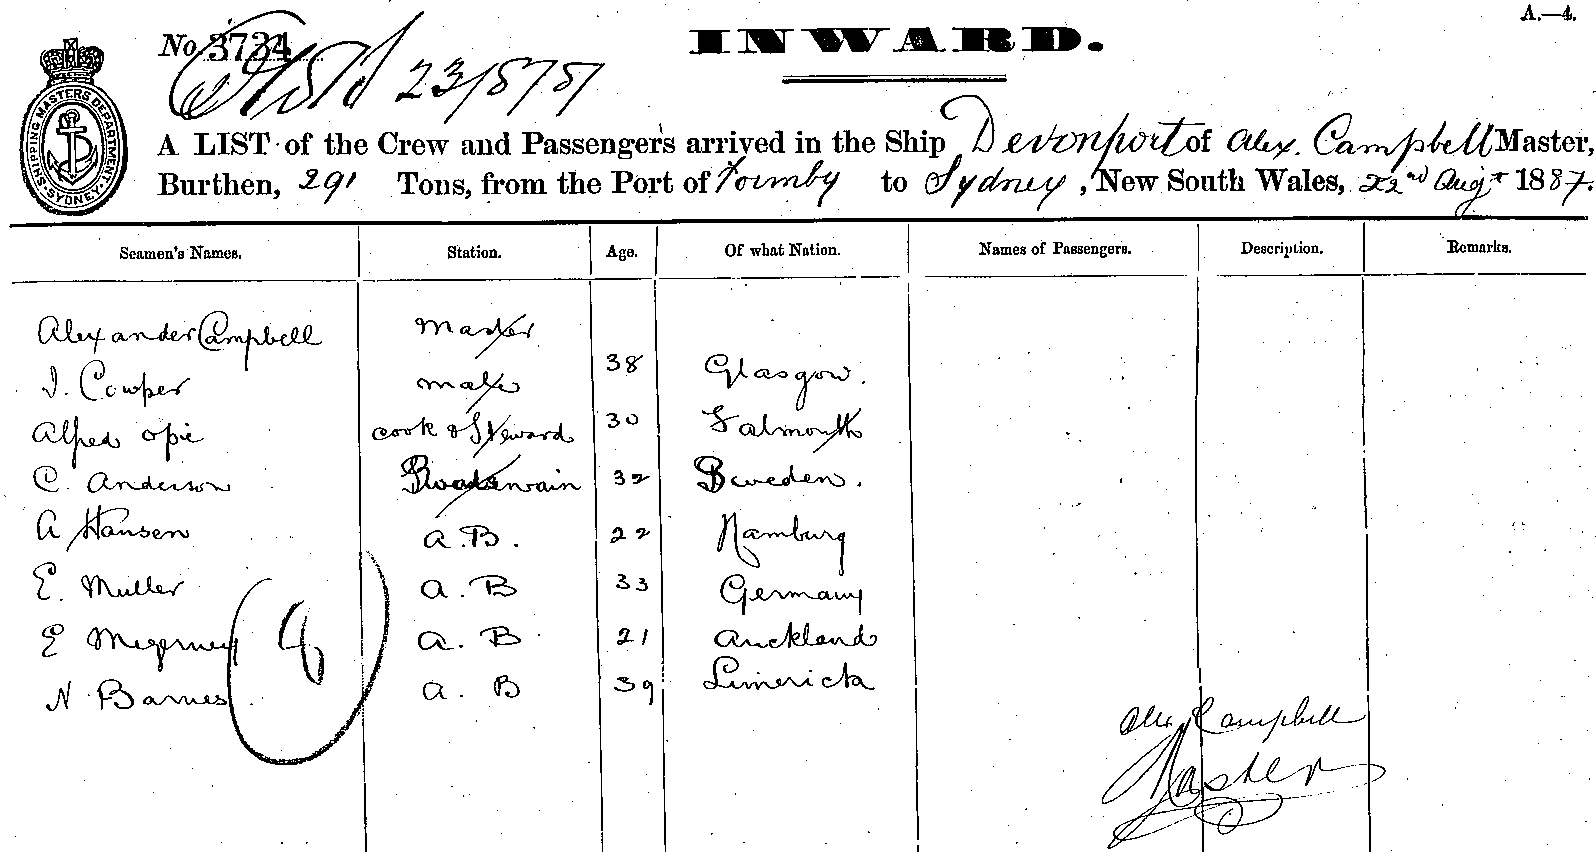 A.—4.
No 3734
INWARD.
23/8/87
SHIPPING MASTERS DEPARTMENT SYDNEY
A LIST of the Crew and Passengers arrived in the Ship Devonport of Alex. Campbell Master,
Burthen, 291 Tons, from the Port of Formby to Sydney, New South Wales, 22nd Augt 1887.
Seamen's Names. Station. Age. Of what Nation. Names of Passengers. Description. Remarks.
Alexander Campbell Master
J. Cowper mate 38 Glasgow.
Alfred Opie cook & Steward 30 Falmouth
C. Anderson Boatswain 32 Sweden.
A Hansen A.B. 22 Hamburg
E. Muller A. B 33 Germany
E A. B 21 Auckland
N Barnes A. B 39 Limerick
Alex Campbell
Master